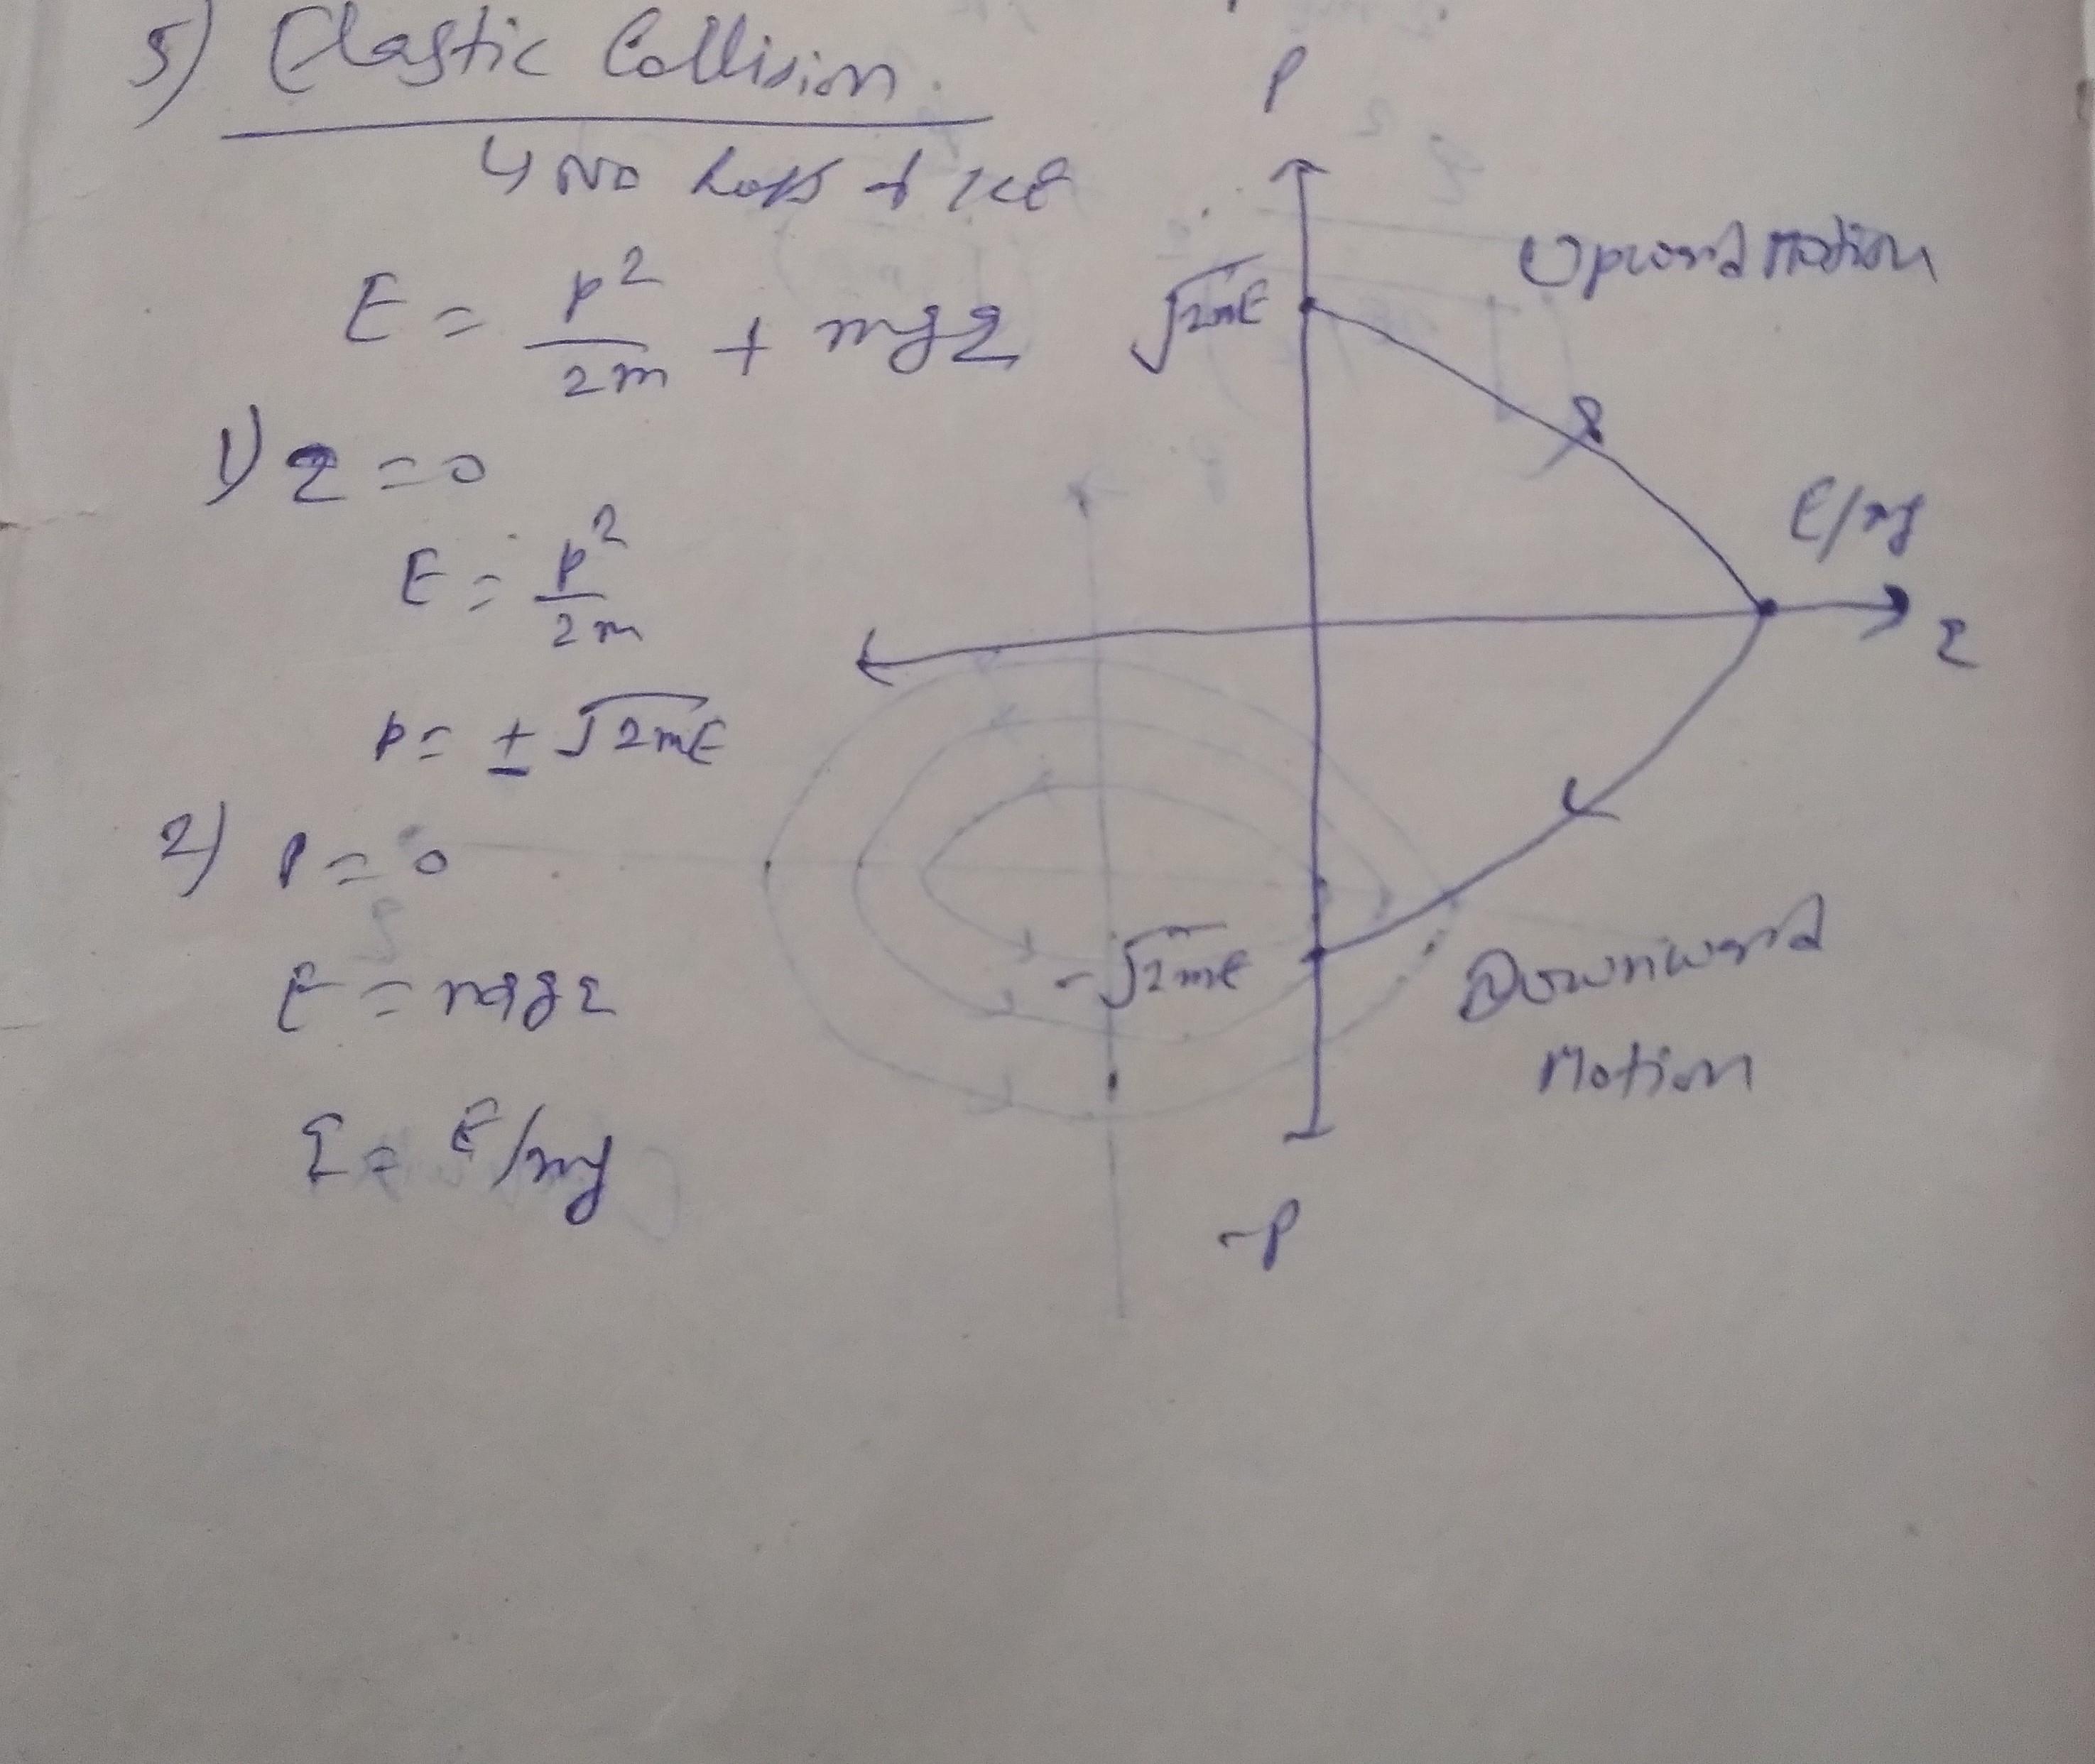 5) Elastic Collision
↳ No Loss of KE
E = p²/2m + mgz
1) z = 0
E = p²/2m
p = ± √2mE
2) P = 0
E = mgz
z = E/mg
P
Upward Motion
√2mE
E/mg
z
-√2mE
Downward
Motion
-P